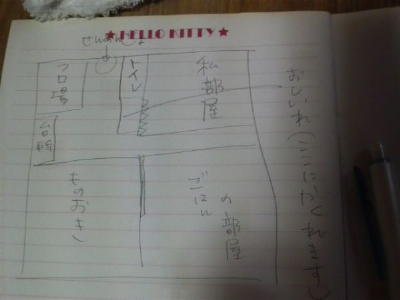 ★HELLO KITTY★
せんめんじょ
フロ場
トイレ
私部屋
おしいれ(ここにかくれます)
台所
ものおき
ごはん
の部屋